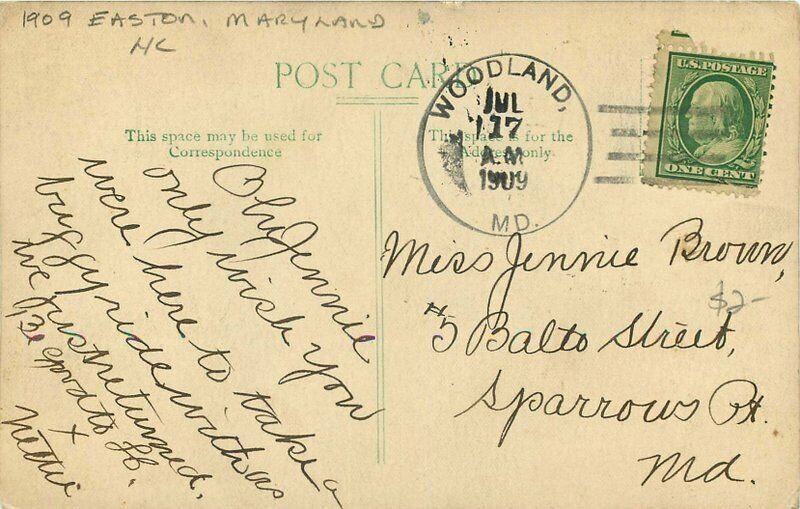 1909 EASTON, MARYLAND
NC
POST CARD
This space may be used for
Correspondence
This space is for the
Address only.
WOODLAND,
JUL
17
A.M
1909
MD.
U.S. POSTAGE
ONE CENT
Oh Jennie
only wish you
were here to take a
buggy ride with us
we just returned.
Be good to
+
Nettie
Miss Jennie Brown,
$2-
#5 Balto Street,
Sparrows Pt.
Md.